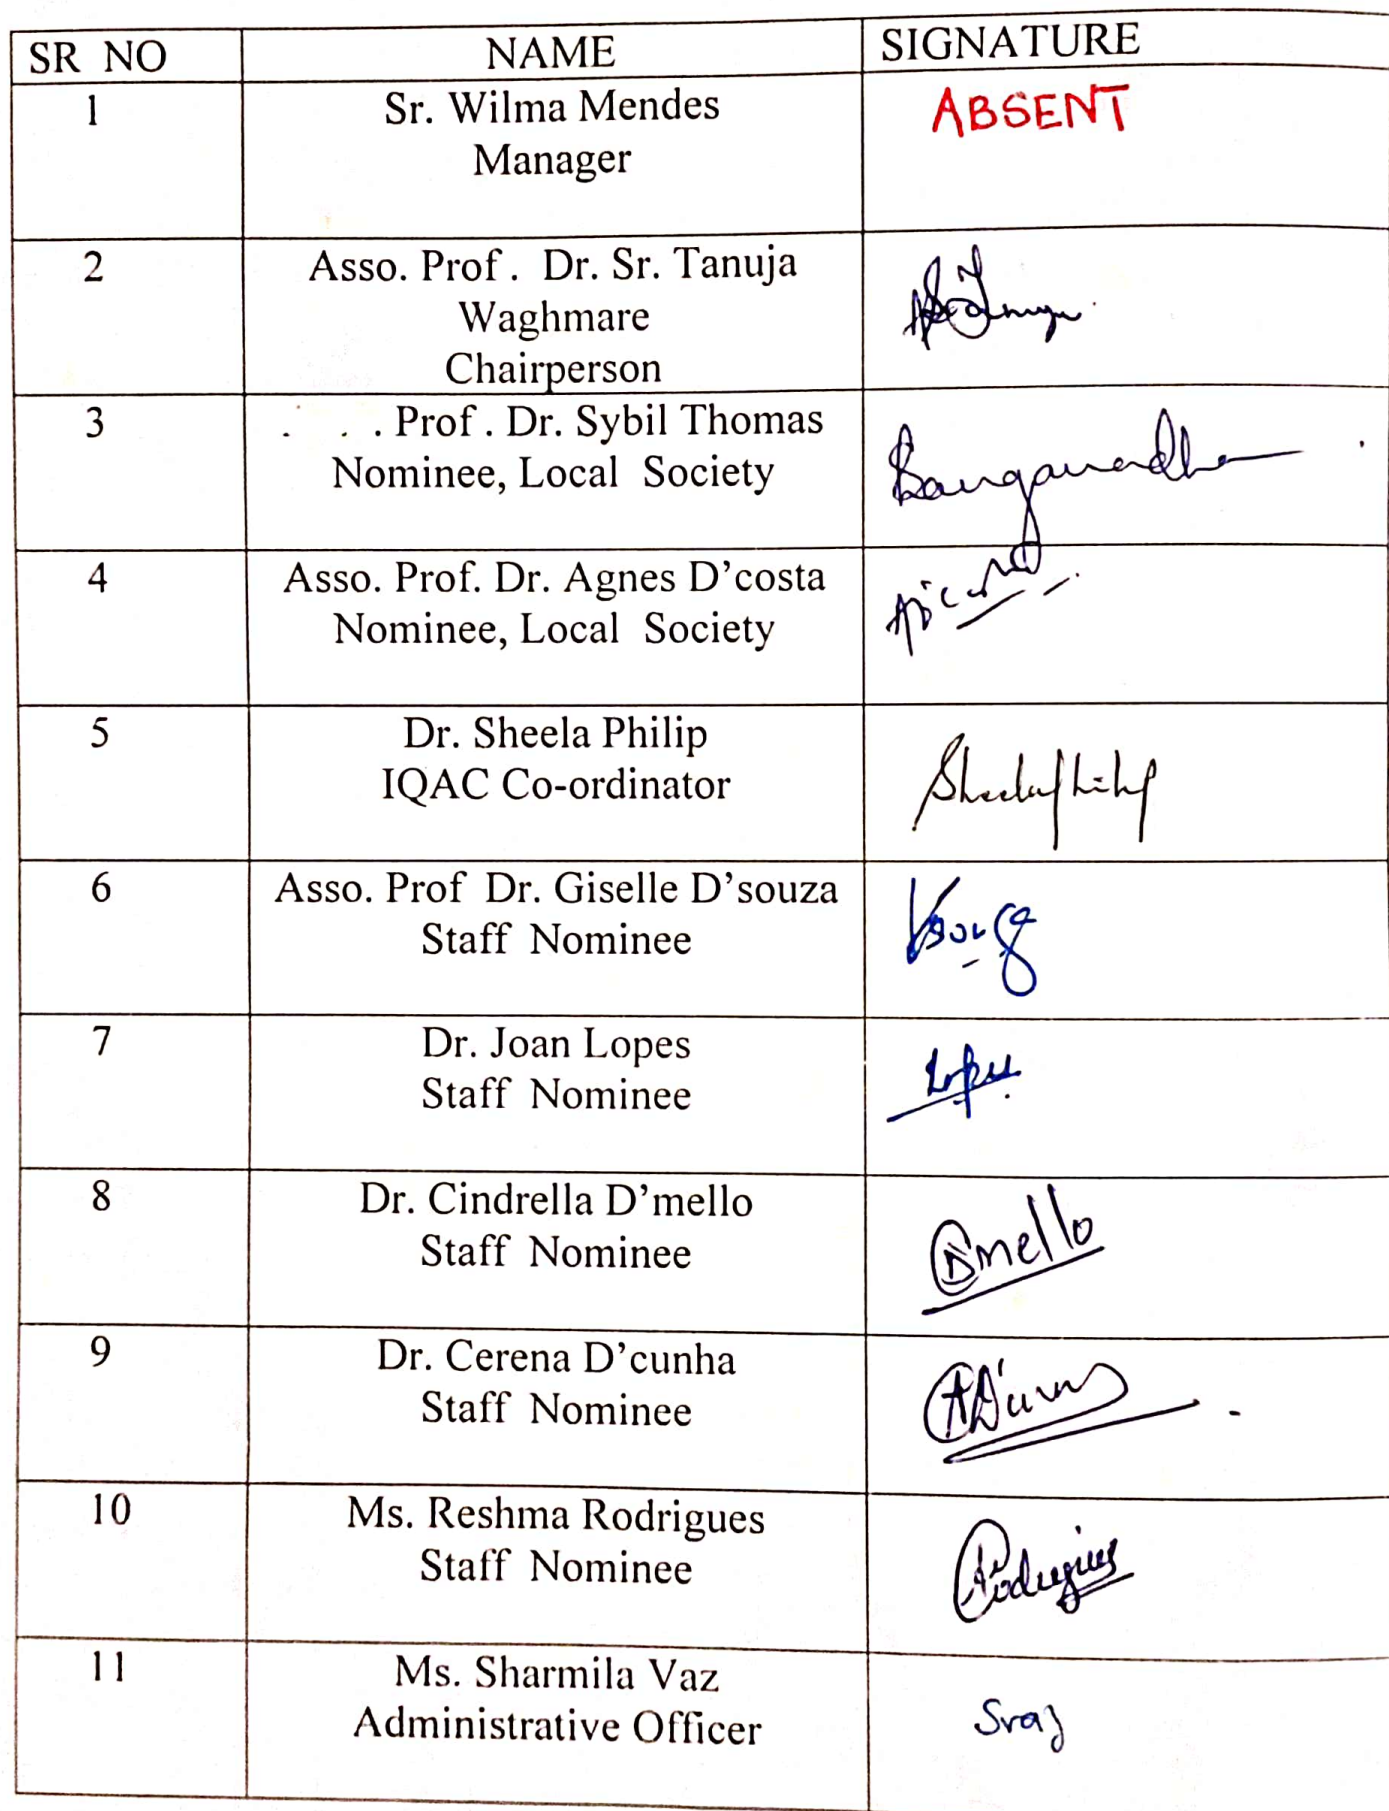 SR NO NAME SIGNATURE
1 Sr. Wilma Mendes ABSENT
Manager
2 Asso. Prof. Dr. Sr. Tanuja
Waghmare
Chairperson
3 . . . Prof. Dr. Sybil Thomas
Nominee, Local Society
4 Asso. Prof. Dr. Agnes D'costa
Nominee, Local Society
5 Dr. Sheela Philip
IQAC Co-ordinator Sheelaphilip
6 Asso. Prof Dr. Giselle D'souza
Staff Nominee
7 Dr. Joan Lopes
Staff Nominee Lopes
8 Dr. Cindrella D'mello
Staff Nominee Dmello
9 Dr. Cerena D'cunha
Staff Nominee
10 Ms. Reshma Rodrigues
Staff Nominee Rodrigues
11 Ms. Sharmila Vaz
Administrative Officer Svaz